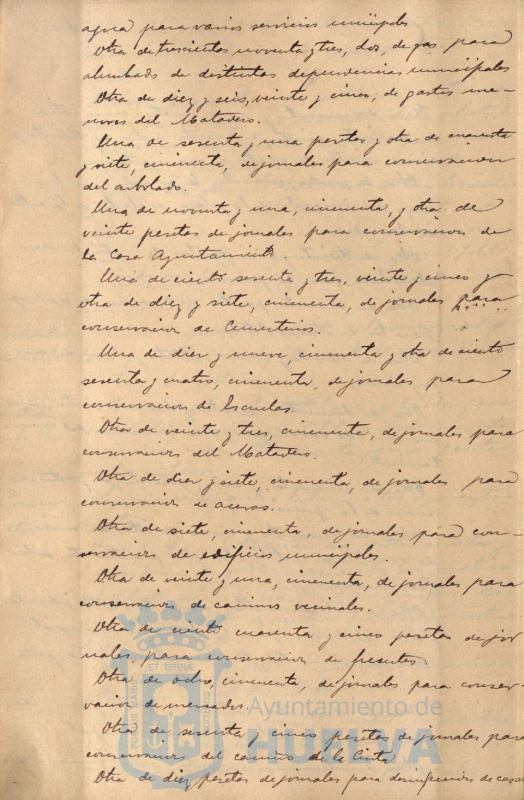 agua para varios servicios municipales
Otra de trescientas noventa y tres, dos, de gas para
alumbrado de distintas dependencias municipales
Otra de diez y seis, veinte y cinco, de gastos me-
nores del Matadero.
Una de sesenta y una pesetas y otra de cuarenta
y siete, cincuenta, de jornales para conservación
del arbolado.
Una de noventa y una, cincuenta, y otra de
veinte pesetas de jornales para conservación de
la Casa Ayuntamiento.
Una de ciento sesenta y tres, veinte y cinco y
otra de diez y siete, cincuenta, de jornales para
conservación de Cementerios.
Una de diez y nueve, cincuenta y otra de ciento
sesenta y cuatro, cincuenta, de jornales para
conservación de Escuelas.
Otra de veinte y tres, cincuenta, de jornales para
conservación del Matadero.
Otra de diez y siete, cincuenta, de jornales para
conservación de aceras.
Otra de siete, cincuenta, de jornales para con-
servación de edificios municipales.
Otra de veinte y una, cincuenta, de jornales para
conservación de caminos vecinales.
Otra de ciento cuarenta y cinco pesetas de jor
nales para conservación de fuentes
Otra de ocho, cincuenta, de jornales para conser-
vación de mercados.
Otra de sesenta y cinco pesetas de jornales para
conservación del camino de la Cinta
Otra de diez pesetas de jornales para desinfección de casas
PORTUS MARIS
ET TERRÆ
CUSTODIA
Ayuntamiento de
HUELVA